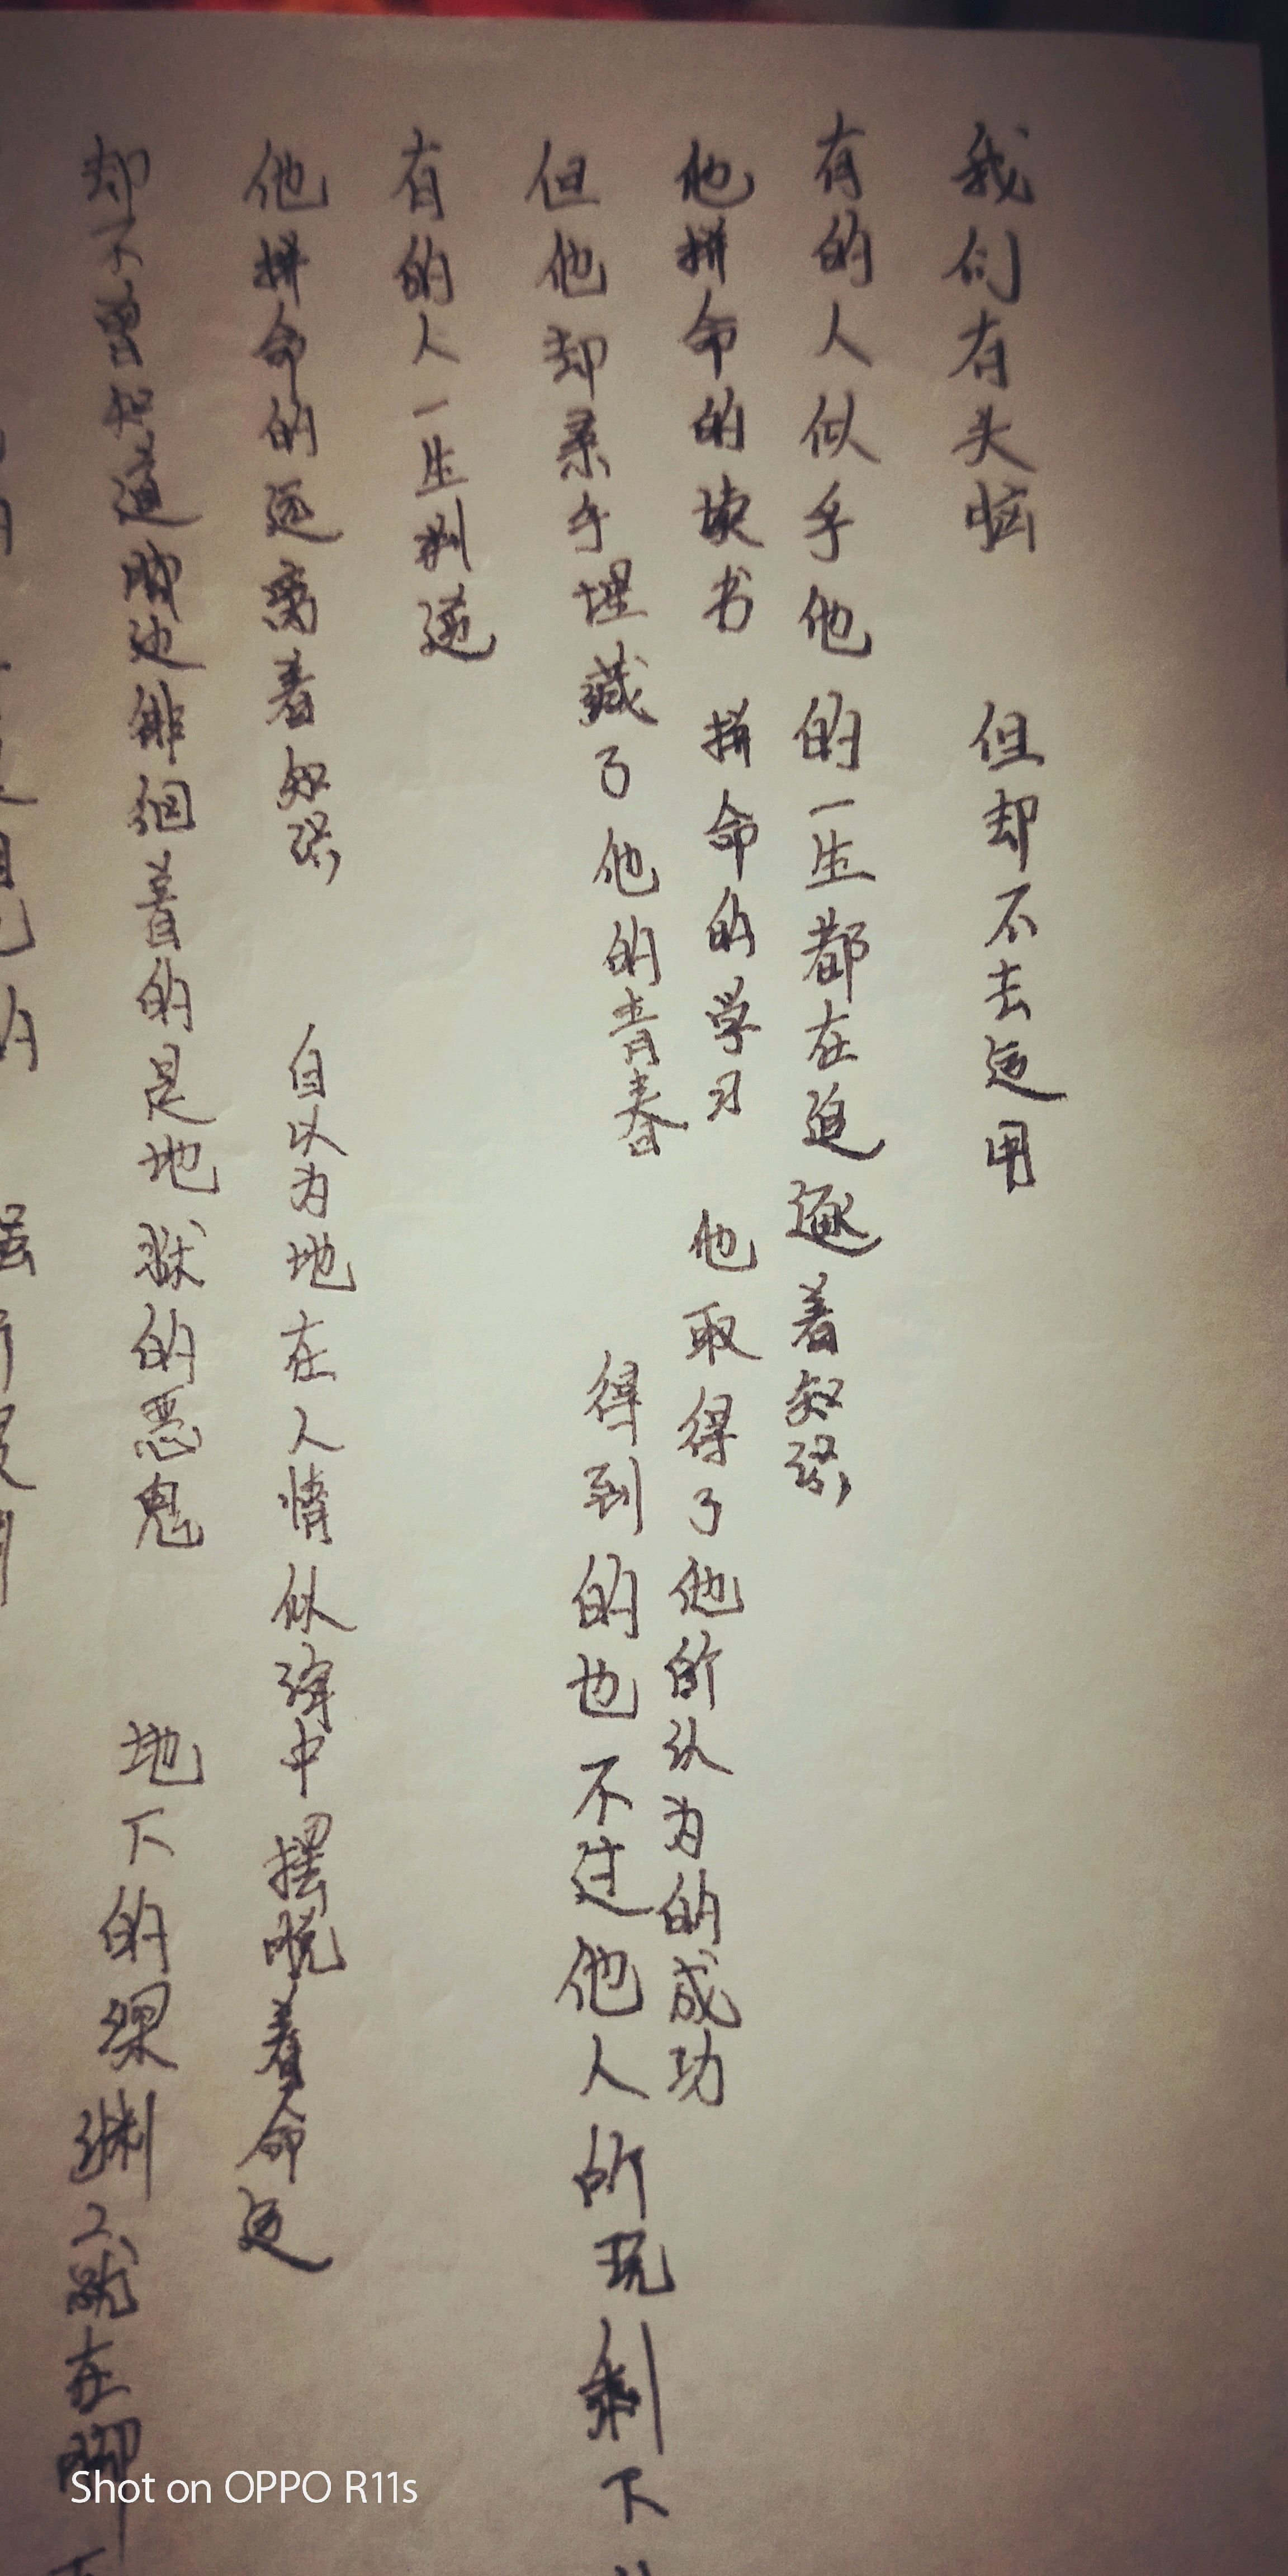 我们有头脑 但却不去运用
有的人似乎他的一生都在追逐着知识
他拼命的读书 拼命的学习 他取得了他所认为的成功
但他却系乎埋藏了他的青春 得到的也不过他人所玩剩下
有的人一生判逆
他拼命的远离着知识 自以为地在人情似海中摆晥着命运
却不曾知道脚边徘徊着的是地狱的恶鬼 地下的深渊就在脚下
Shot on OPPO R11s